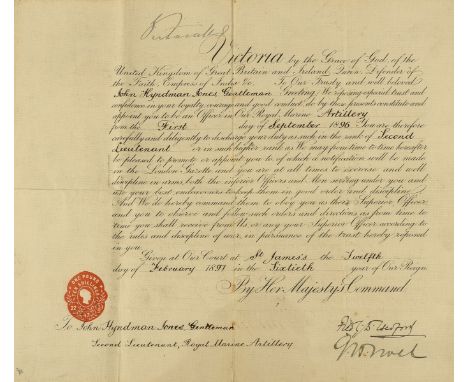 Victoria by the Grace of God, of the
United Kingdom of Great Britain and Ireland, Queen, Defender of
the Faith, Empress of India &c To Our Trusty and well beloved
John Hyndman Jones Gentleman Greeting. We reposing especial trust and
confidence in your loyalty, courage and good conduct, do by these presents constitute and
appoint you to be an Officer in Our Royal Marine Artillery
from the First day of September 1896. You are therefore
carefully and diligently to discharge your duty as such in the rank of Second
Lieutenant or in such higher rank as We may from time to time hereafter
be pleased to promote or appoint you to, of which a notification will be made
in the London Gazette and you are at all times to exercise and well
discipline in arms, both the inferior Officers and Men serving under you and
use your best endeavours to keep them in good order and discipline.
And We do hereby command them to obey you as their Superior Officer
and you to observe and follow such orders and directions as from time to
time you shall receive from Us, or any your Superior Officer according to
the rules and discipline of war, in pursuance of the trust hereby reposed
in you.
Given at Our Court at St James's the Twelfth
day of February 1897 in the Sixtieth year of Our Reign
By Her Majesty's Command
ONE POUND
TEN SHILLINGS
To John Hyndman Jones Gentleman
Second Lieutenant, Royal Marine Artillery